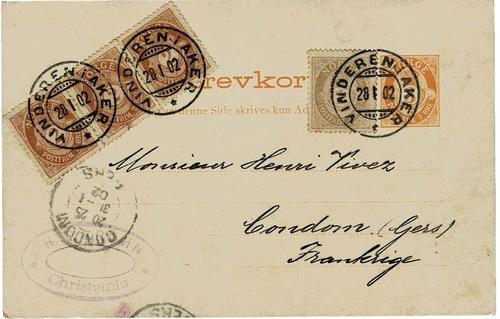 VINDEREN.I.AKER
28 I 02
VINDEREN.I.AKER
28 I 02
VINDEREN.I.AKER
28 I 02
POSTFRIM
revkort
denne Side skrives kun Ad
Monsieur Henri Vivez
Condom (Gers)
Frankrige
CONDOM
20 25
31 - 1
02
GERS
Christiania